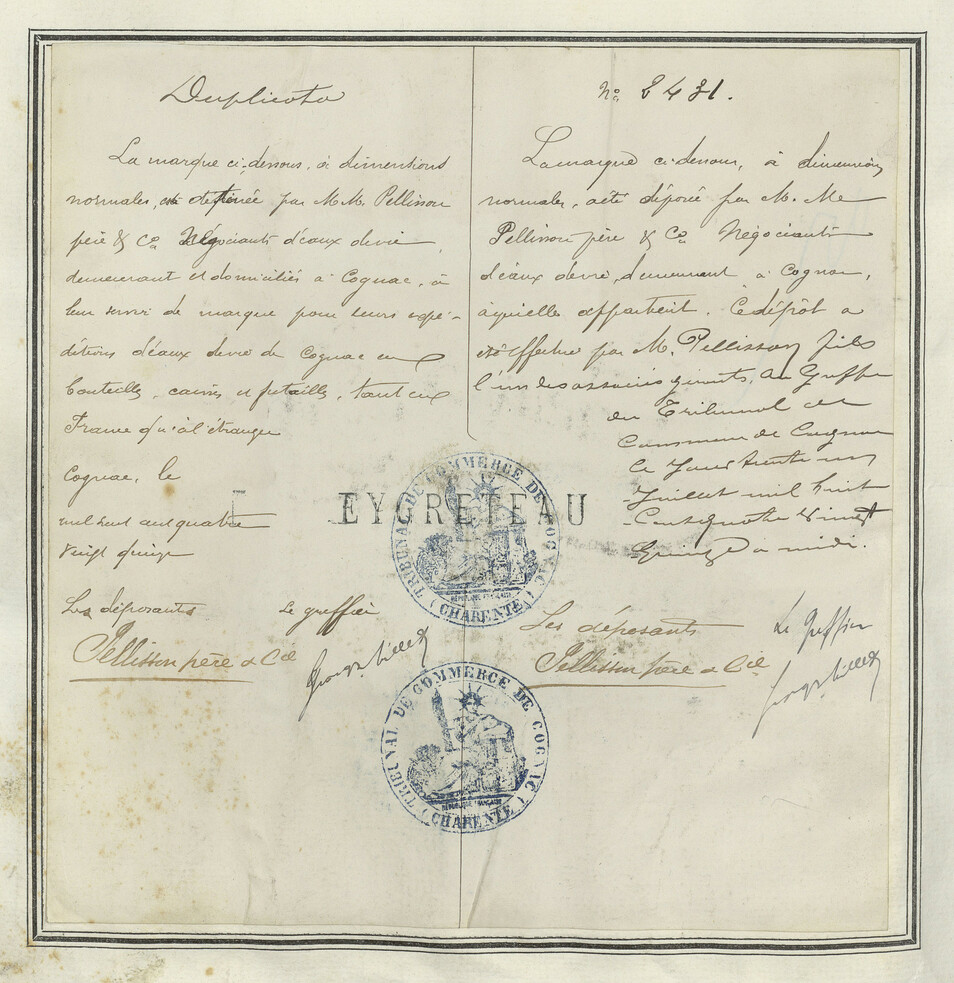 Duplicata
La marque ci-dessous, à dimensions
normales, est destinée par M.M. Pellisson
père & Co Négociants d'eaux de vie,
demeurant et domiciliés à Cognac, à
leur servir de marque pour leurs expé-
ditions d'eaux de vie de Cognac en
bouteilles, caisses et futailles, tant en
France qu'à l'étranger
Cognac, le
mil huit cent quatre
vingt quinze
Les déposants Le greffier
Pellisson père & Cie
No 2431.
La marque ci-dessous, à dimensions
normales, a été déposée par M. M
Pellisson père & Co Négociants
d'eaux de vie, demeurant à Cognac,
à qui elle appartient. Ce dépôt a
été effectué par M. Pellisson fils
l'un des associés gérants, au Greffe
du Tribunal de
Commerce de Cognac
le Jour trente un
Juillet mil huit
Cent quatre vingt
Quinze à midi.
Les déposants Le Greffier
Pellisson père & Cie
EYGRETEAU
TRIBUNAL DE COMMERCE DE COGNAC
RÉPUBLIQUE FRANÇAISE
(CHARENTE)
TRIBUNAL DE COMMERCE DE COGNAC
RÉPUBLIQUE FRANÇAISE
(CHARENTE)